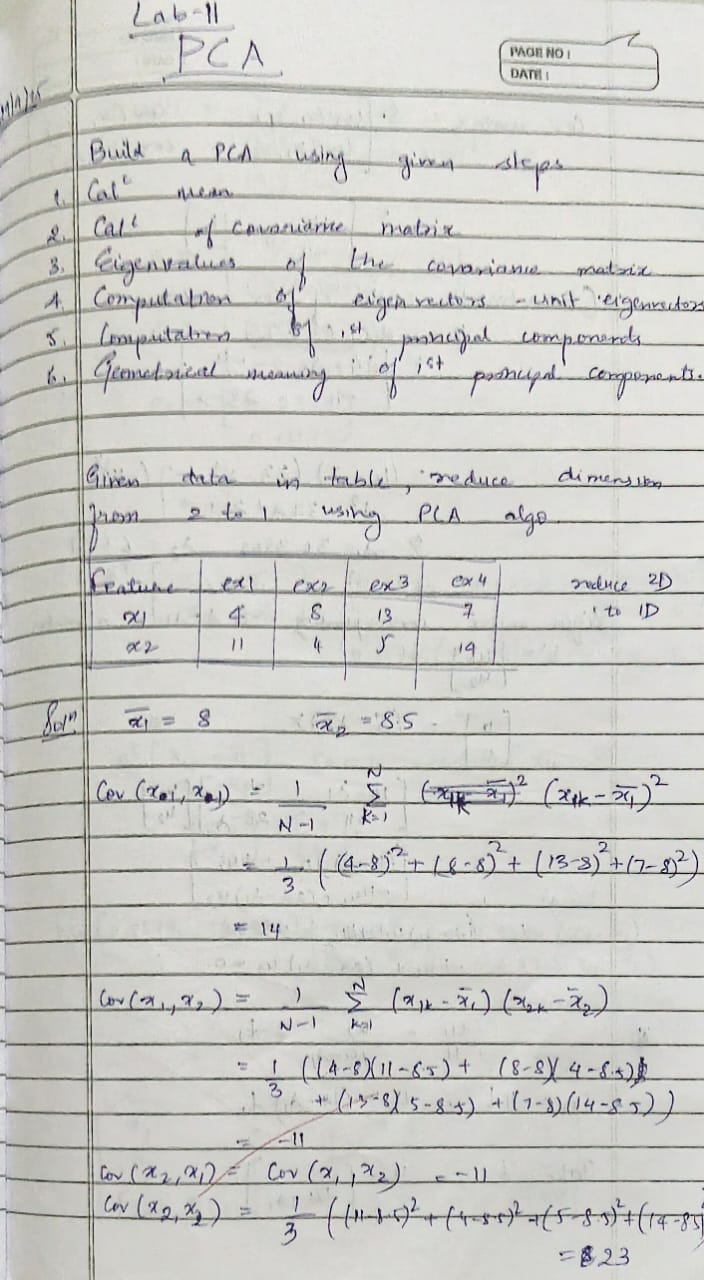 Lab-11
PCA
PAGE NO :
DATE :
Build a PCA using given steps
1. Calc mean
2. Calc of covariance matrix
3. Eigenvalues of the covariance matrix
4. Computation of eigen vectors - unit eigenvectors
5. Computation of 1st principal components
6. Geometrical meaning of 1st principal components.
Given data in table, reduce dimension
from 2 to 1 using PCA algo
Feature ex1 ex2 ex3 ex4 reduce 2D
x1 4 8 13 7 to 1D
x2 11 4 5 14
Soln x̄₁ = 8 x̄₂ = 8.5
Cov (x₁, x₁) = 1/(N-1) Σ_{k=1}^{N} (x₁k - x̄₁)²
= 1/3 ((4-8)² + (8-8)² + (13-8)² + (7-8)²)
= 14
Cov (x₁, x₂) = 1/(N-1) Σ_{k=1}^{N} (x₁k - x̄₁) (x₂k - x̄₂)
= 1/3 ((4-8)(11-8.5) + (8-8)(4-8.5)
+ (13-8)(5-8.5) + (7-8)(14-8.5))
= -11
Cov (x₂, x₁) = Cov (x₁, x₂) = -11
Cov (x₂, x₂) = 1/3 ((11-8.5)² + (4-8.5)² + (5-8.5)² + (14-8.5)
= 23